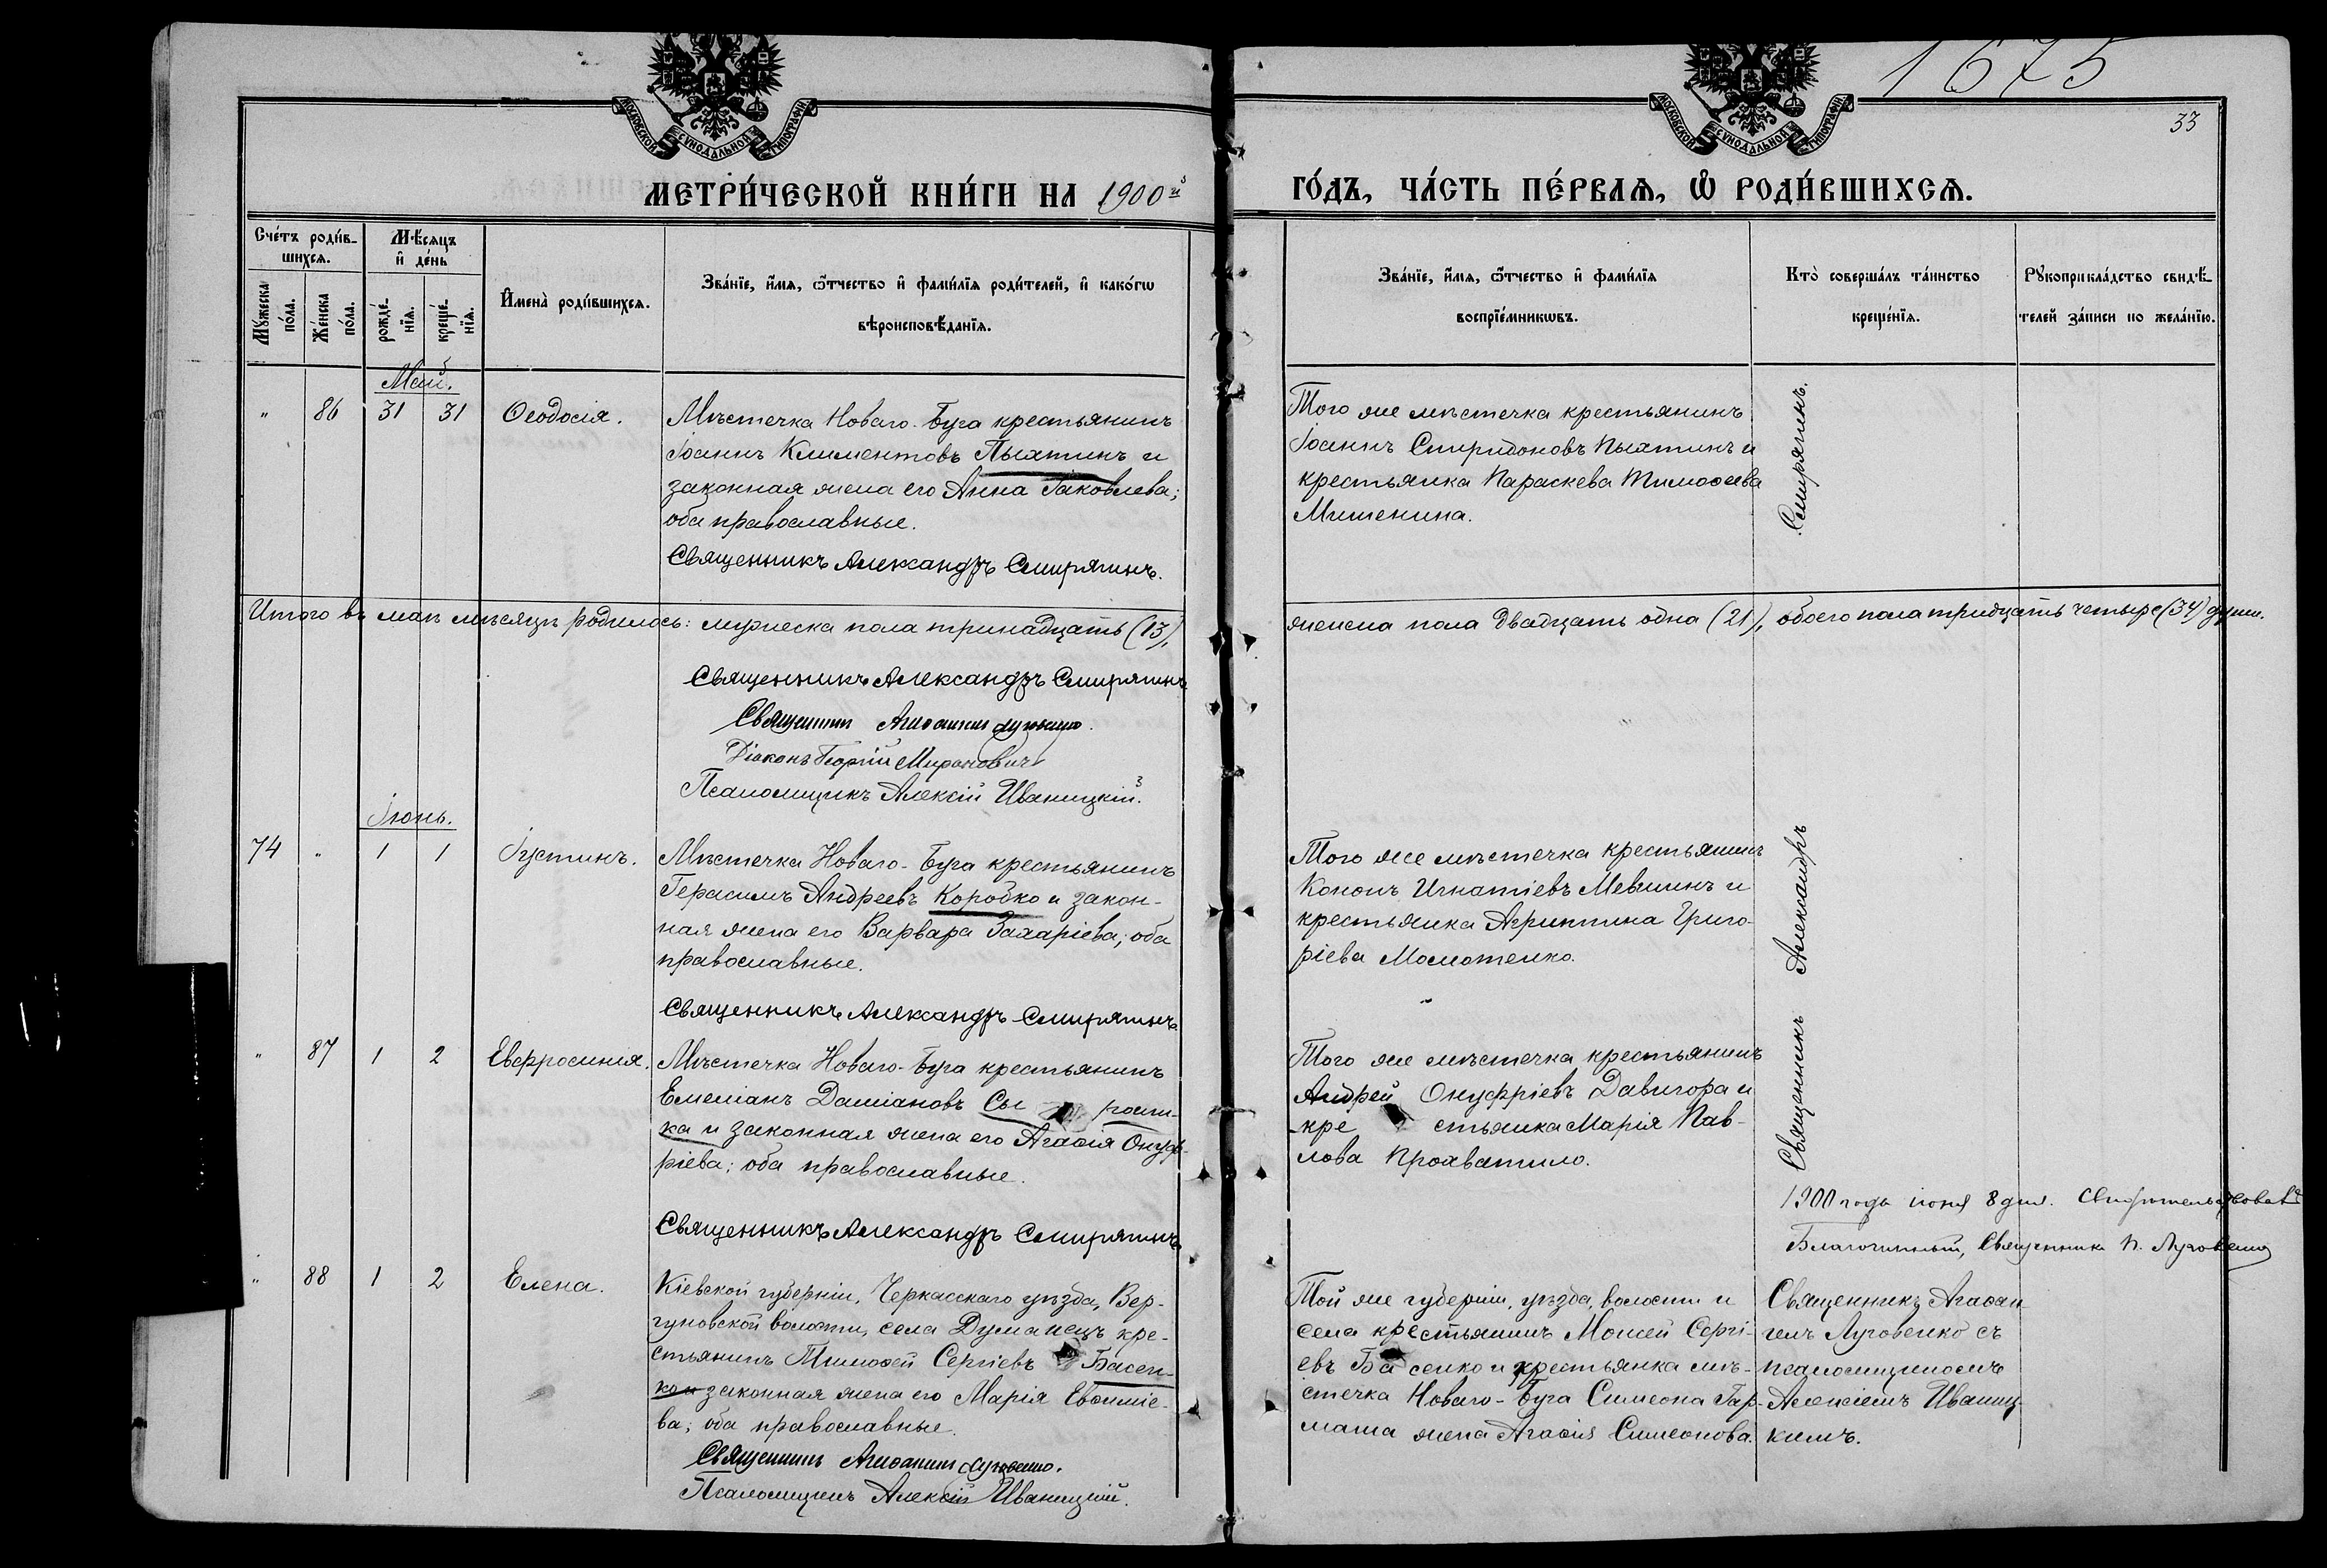 1675
33
МОСКОВСКОЙ СѴНОДАЛЬНОЙ ТИПОГРАФІИ
МОСКОВСКОЙ СѴНОДАЛЬНОЙ ТИПОГРАФІИ
МЕТРИ́ЧЕСКОЙ КНИ́ГИ НА 1900й ГО́ДЪ, ЧА́СТЬ ПЕ́РВАѦ, Ѡ҆ РОДИ́ВШИХСѦ.
Сче́тъ роди́в-
шихсѧ.
Мꙋ́жеска по́ла.
Же́нска по́ла.
Мѣ́сѧцъ
и҆ де́нь
рожде́-
нїѧ.
креще́-
нїѧ.
И҆мена̀ роди́вшихсѧ.
Зва́нїе, и҆́мѧ, ѻ҆́тчество и҆ фами́лїѧ роди́телей, и҆ како́гѡ
вѣроисповѣ́данїѧ.
Зва́нїе, и҆́мѧ, ѻ҆́тчество и҆ фами́лїѧ
воспрїе́мникѡвъ.
Кто̀ соверша́лъ та́инство
креще́нїѧ.
Рꙋкоприкла́дство свидѣ́-
телей за́писи по жела́нїю.
Май.
" 86 31 31 Ѳеодосія.
Мѣстечка Новаго-Буга крестьянинъ
Іоаннъ Климентовъ Пыхтинъ и
законная жена его Анна Іаковлева;
оба православные.
Священникъ Александръ Смирягинъ.
Того же мѣстечка крестьянинъ
Іоаннъ Спиридоновъ Пыхтинъ и
крестьянка Параскева Тимоѳеева
Мишенина.
Итого въ маѣ мѣсяцѣ родилось: мужеска пола тринадцать (13), женска пола двадцать одна (21), обоего пола тридцать четыре (34) души.
Священникъ Александръ Смирягинъ
Священникъ Агаѳангелъ Луговенко.
Діаконъ Георгій Мироновичъ
Псаломщикъ Алексій Иваницкій.
Іюнь.
74 " 1 1 Іустинъ.
Мѣстечка Новаго-Буга крестьянинъ
Герасимъ Андреевъ Коробко и закон-
ная жена его Варвара Захаріева; оба
православные.
Священникъ Александръ Смирягинъ
Того же мѣстечка крестьянинъ
Кононъ Игнатіевъ Мевшинъ и
крестьянка Агриппина Григо-
ріева Молотенко.
" 87 1 2 Евфросинія.
Мѣстечка Новаго-Буга крестьянинъ
Емеліанъ Даміановъ Сы роват-
ка и законная жена его Агаѳія Онуф-
ріева; оба православные.
Священникъ Александръ Смирягинъ
Того же мѣстечка крестьянинъ
Андрей Онуфріевъ Давигора и
кре стьянка Марія Пав-
лова Прохватило.
Священникъ Александръ Смирягинъ.
1900 года іюня 8 дня. Свидѣтельствовалъ
Благочинный, Священникъ П. Луговенко
" 88 1 2 Елена.
Кіевской губерніи, Черкасскаго уѣзда, Вер-
гуновской волости, села Думанецъ кре-
стьянинъ Тимоѳей Сергіевъ Басен-
ко и законная жена его Марія Евѳиміе-
ва; оба православные.
Священникъ Агаѳангелъ Луговенко.
Псаломщикъ Алексій Иваницкій.
Той же губерніи, уѣзда, волости и
села крестьянинъ Моисей Сергі-
евъ Ба сенко и крестьянка мѣ-
стечка Новаго-Буга Симеона Гар-
маша жена Агаѳія Симеонова.
Священникъ Агаѳан
гелъ Луговенко съ
псаломщикомъ
Алексіемъ Иваниц-
кимъ.